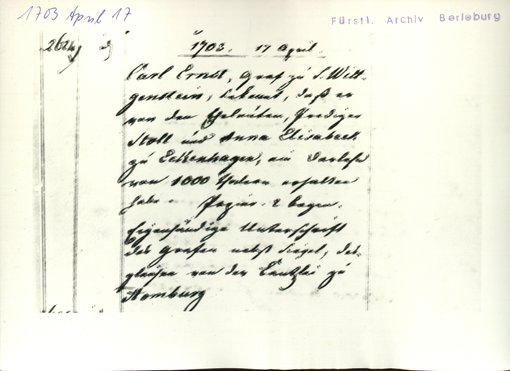 1703 April 17
Fürstl. Archiv Berleburg
262 1703. 17 April.
Carl Ernst, Graf zu S. Witt-
genstein, bekennt, daß er
von den Eheleuten, Prediger
Stoll und Anna Elisabeth
zu Eckenhagen, ein Darlehn
von 1000 Thalern erhalten
habe. Papier. 2 Bogen.
Eigenhändige Unterschrift
des Grafen nebst Siegel, des-
gleichen von der Canzlei zu
Homburg